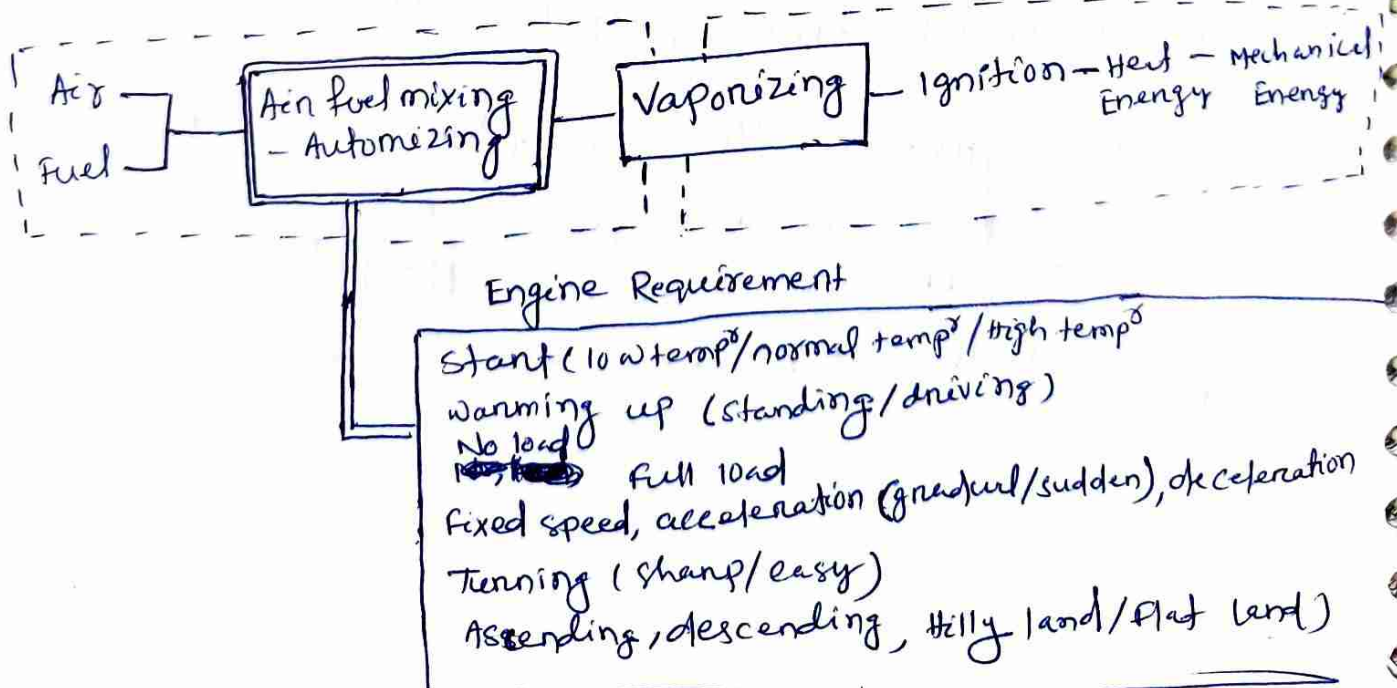 Air
Fuel
Air fuel mixing
- Automizing
Vaporizing
Ignition - Heat - Mechanical
Energy Energy
Engine Requirement
Start (low tempʳ/normal tempʳ/High tempʳ
warming up (standing/driving)
No load
Full load
Fixed speed, acceleration (gradual/sudden), deceleration
Turning (sharp/easy)
Ascending, descending, Hilly land/Flat land)